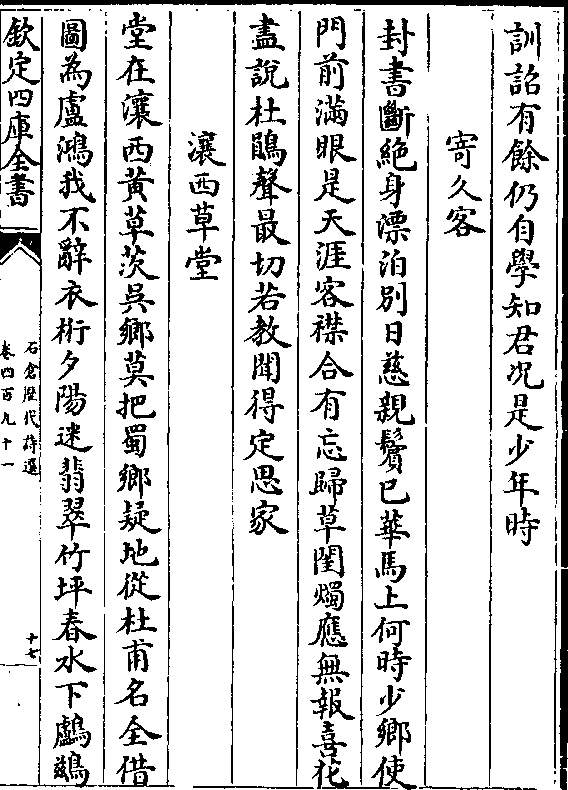 訓詔有餘仍自學知君况是少年時
寄久客
封書斷絶身漂泊别日慈親鬢已華馬上何時少鄉使
門前滿眼是天涯客襟合有忘歸草閨燭應無報喜花
盡說杜鵑聲最切若教聞得定思家
瀼西草堂
堂在瀼西黄草茨吳鄉莫把蜀鄉疑地從杜甫名全借
圖為盧鴻我不辭衣桁夕陽迷翡翠竹坪春水下鸕鷀
欽定四庫全書
石倉歷代詩選
卷四百九十一
十七